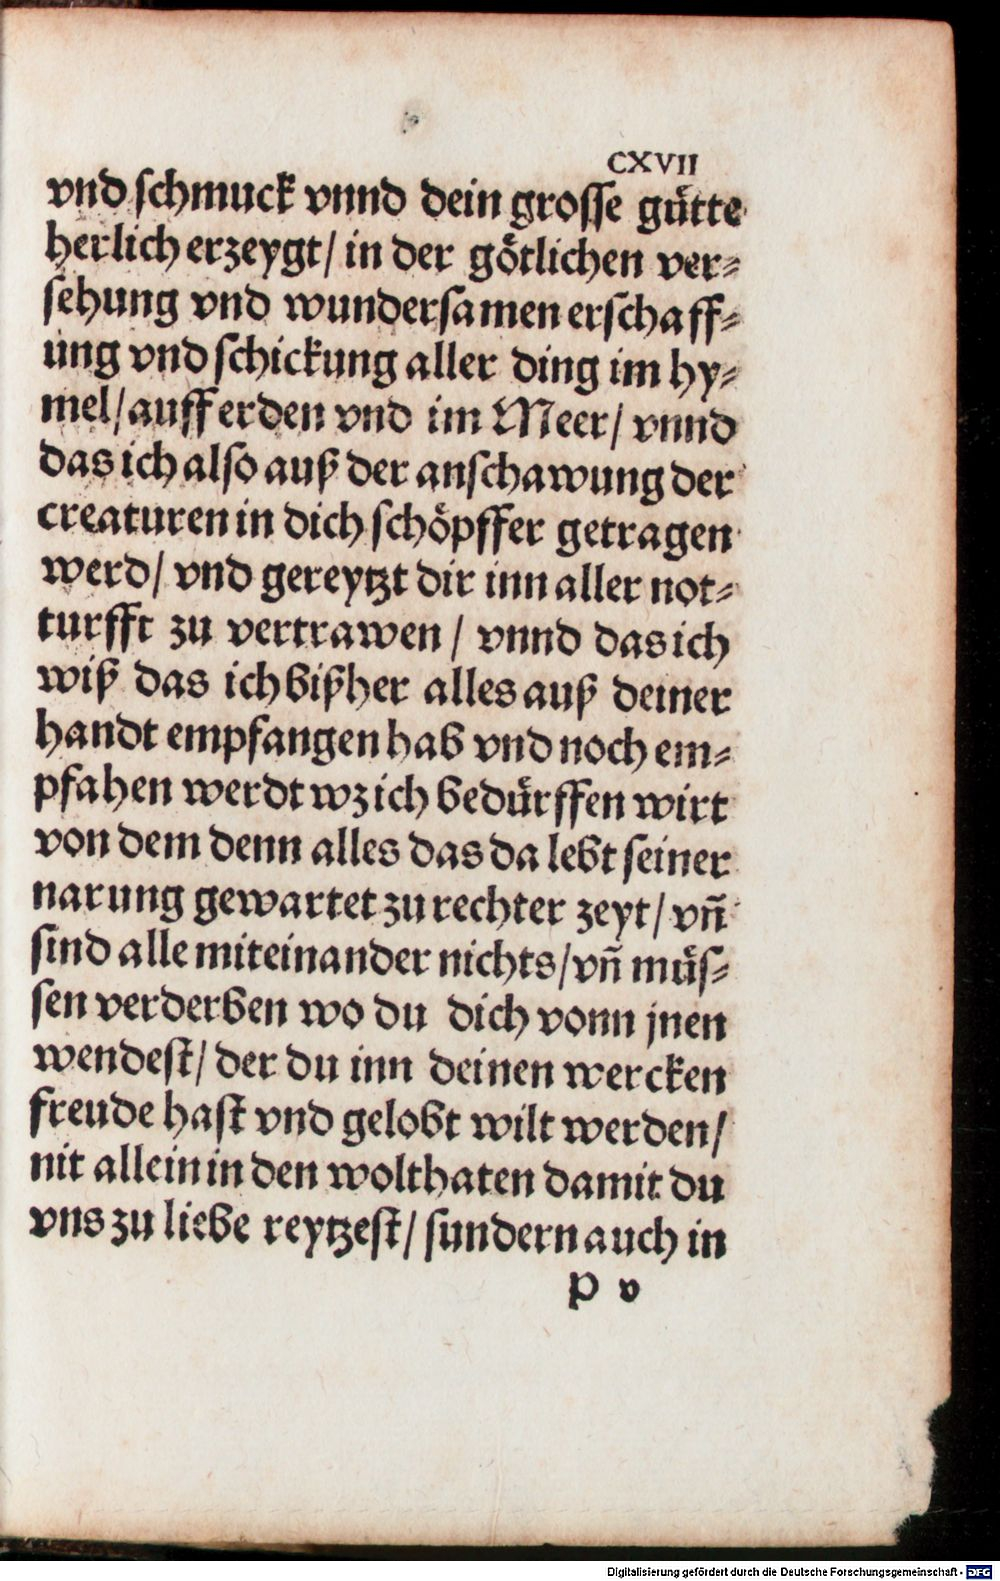 CXVII
vnd schmuck vnnd dein grosse guͤtte
herlich erzeygt/ in der goͤtlichen ver⸗
sehung vnd wundersamen erschaff⸗
ung vnd schickung aller ding im hy⸗
mel/ auff erden vnd im Meer/ vnnd
das ich also auß der anschawung der
creaturen in dich schoͤpffer getragen
werd/ vnd gereytzt dir inn aller not⸗
turfft zu vertrawen/ vnnd das ich
wiß das ich bißher alles auß deiner
handt empfangen hab vnd noch em⸗
pfahen werdt wz ich beduͤrffen wirt
von dem denn alles das da lebt seiner
narung gewartet zu rechter zeyt/ vñ
sind alle miteinander nichts/ vñ muͤs⸗
sen verderben wo du dich vonn jnen
wendest/ der du inn deinen wercken
freude hast vnd gelobt wilt werden/
nit allein in den wolthaten damit du
vns zu liebe reytzest/ sundern auch in
P v
Digitalisierung gefördert durch die Deutsche Forschungsgemeinschaft - DFG